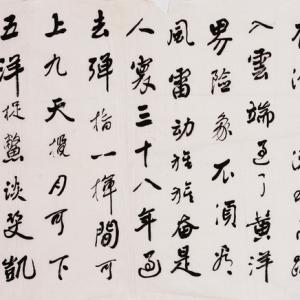 入雲端過了黄洋
界險處不須看
風雷动旌旗奋是
人寰三十八年過
去弹指一揮間可
上九天攬月可下
五洋捉鱉談笑凱